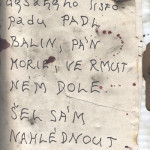 padu PADL
BALIN, PÁN
MORIE, VE RMUT
NÉM DOLE
ŠEL SÁM
NAHLÉDNOUT